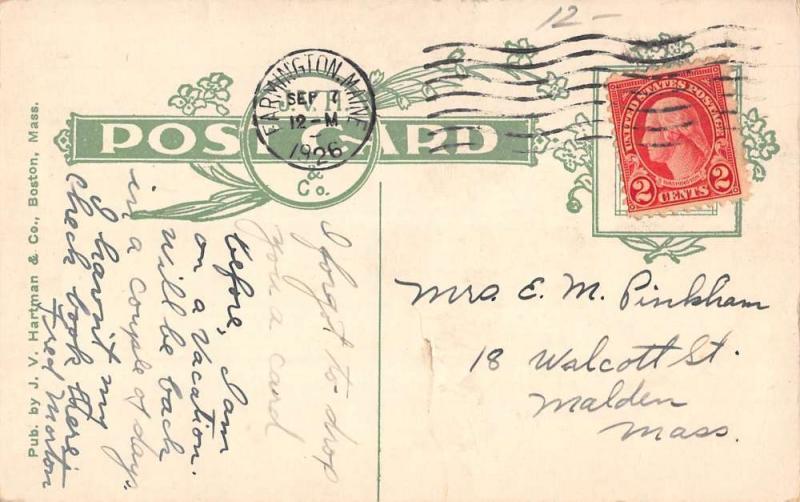 12-
FARMINGTON, MAINE
SEP 7
12-M
1926
J.V.H.
POST CARD
& Co.
UNITED STATES POSTAGE
WASHINGTON
2 CENTS 2
Pub. by J. V. Hartman & Co., Boston, Mass.
I forgot to drop
you a card
before, I am
on a vacation.
Will be back
in a couple of days.
I havn't my
check book here.
Fred Morton
Mrs. E. M. Pinkham
18 Walcott St.
Malden
Mass.